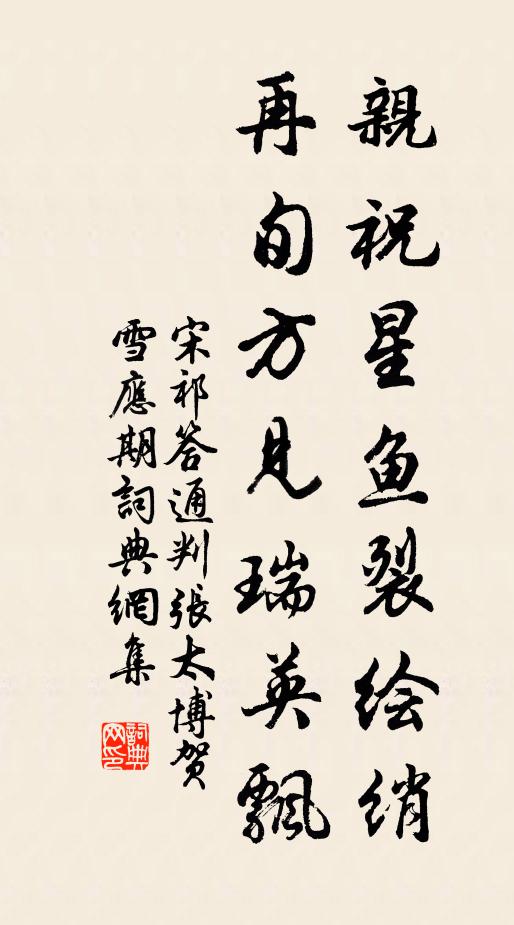 親祝星鱼裂绘绡
再旬方見瑞英飄
宋祁答通判張太博賀
雪應期詞典網集
詞典網印